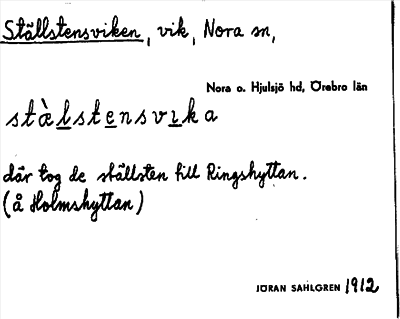 Ställstensviken, vik, Nora sn,
Nora o. Hjulsjö hd, Örebro län
stàlstensvıka
där tog de ställsten till Ringshyttan.
(å Holmshyttan)
JÖRAN SAHLGREN 1912